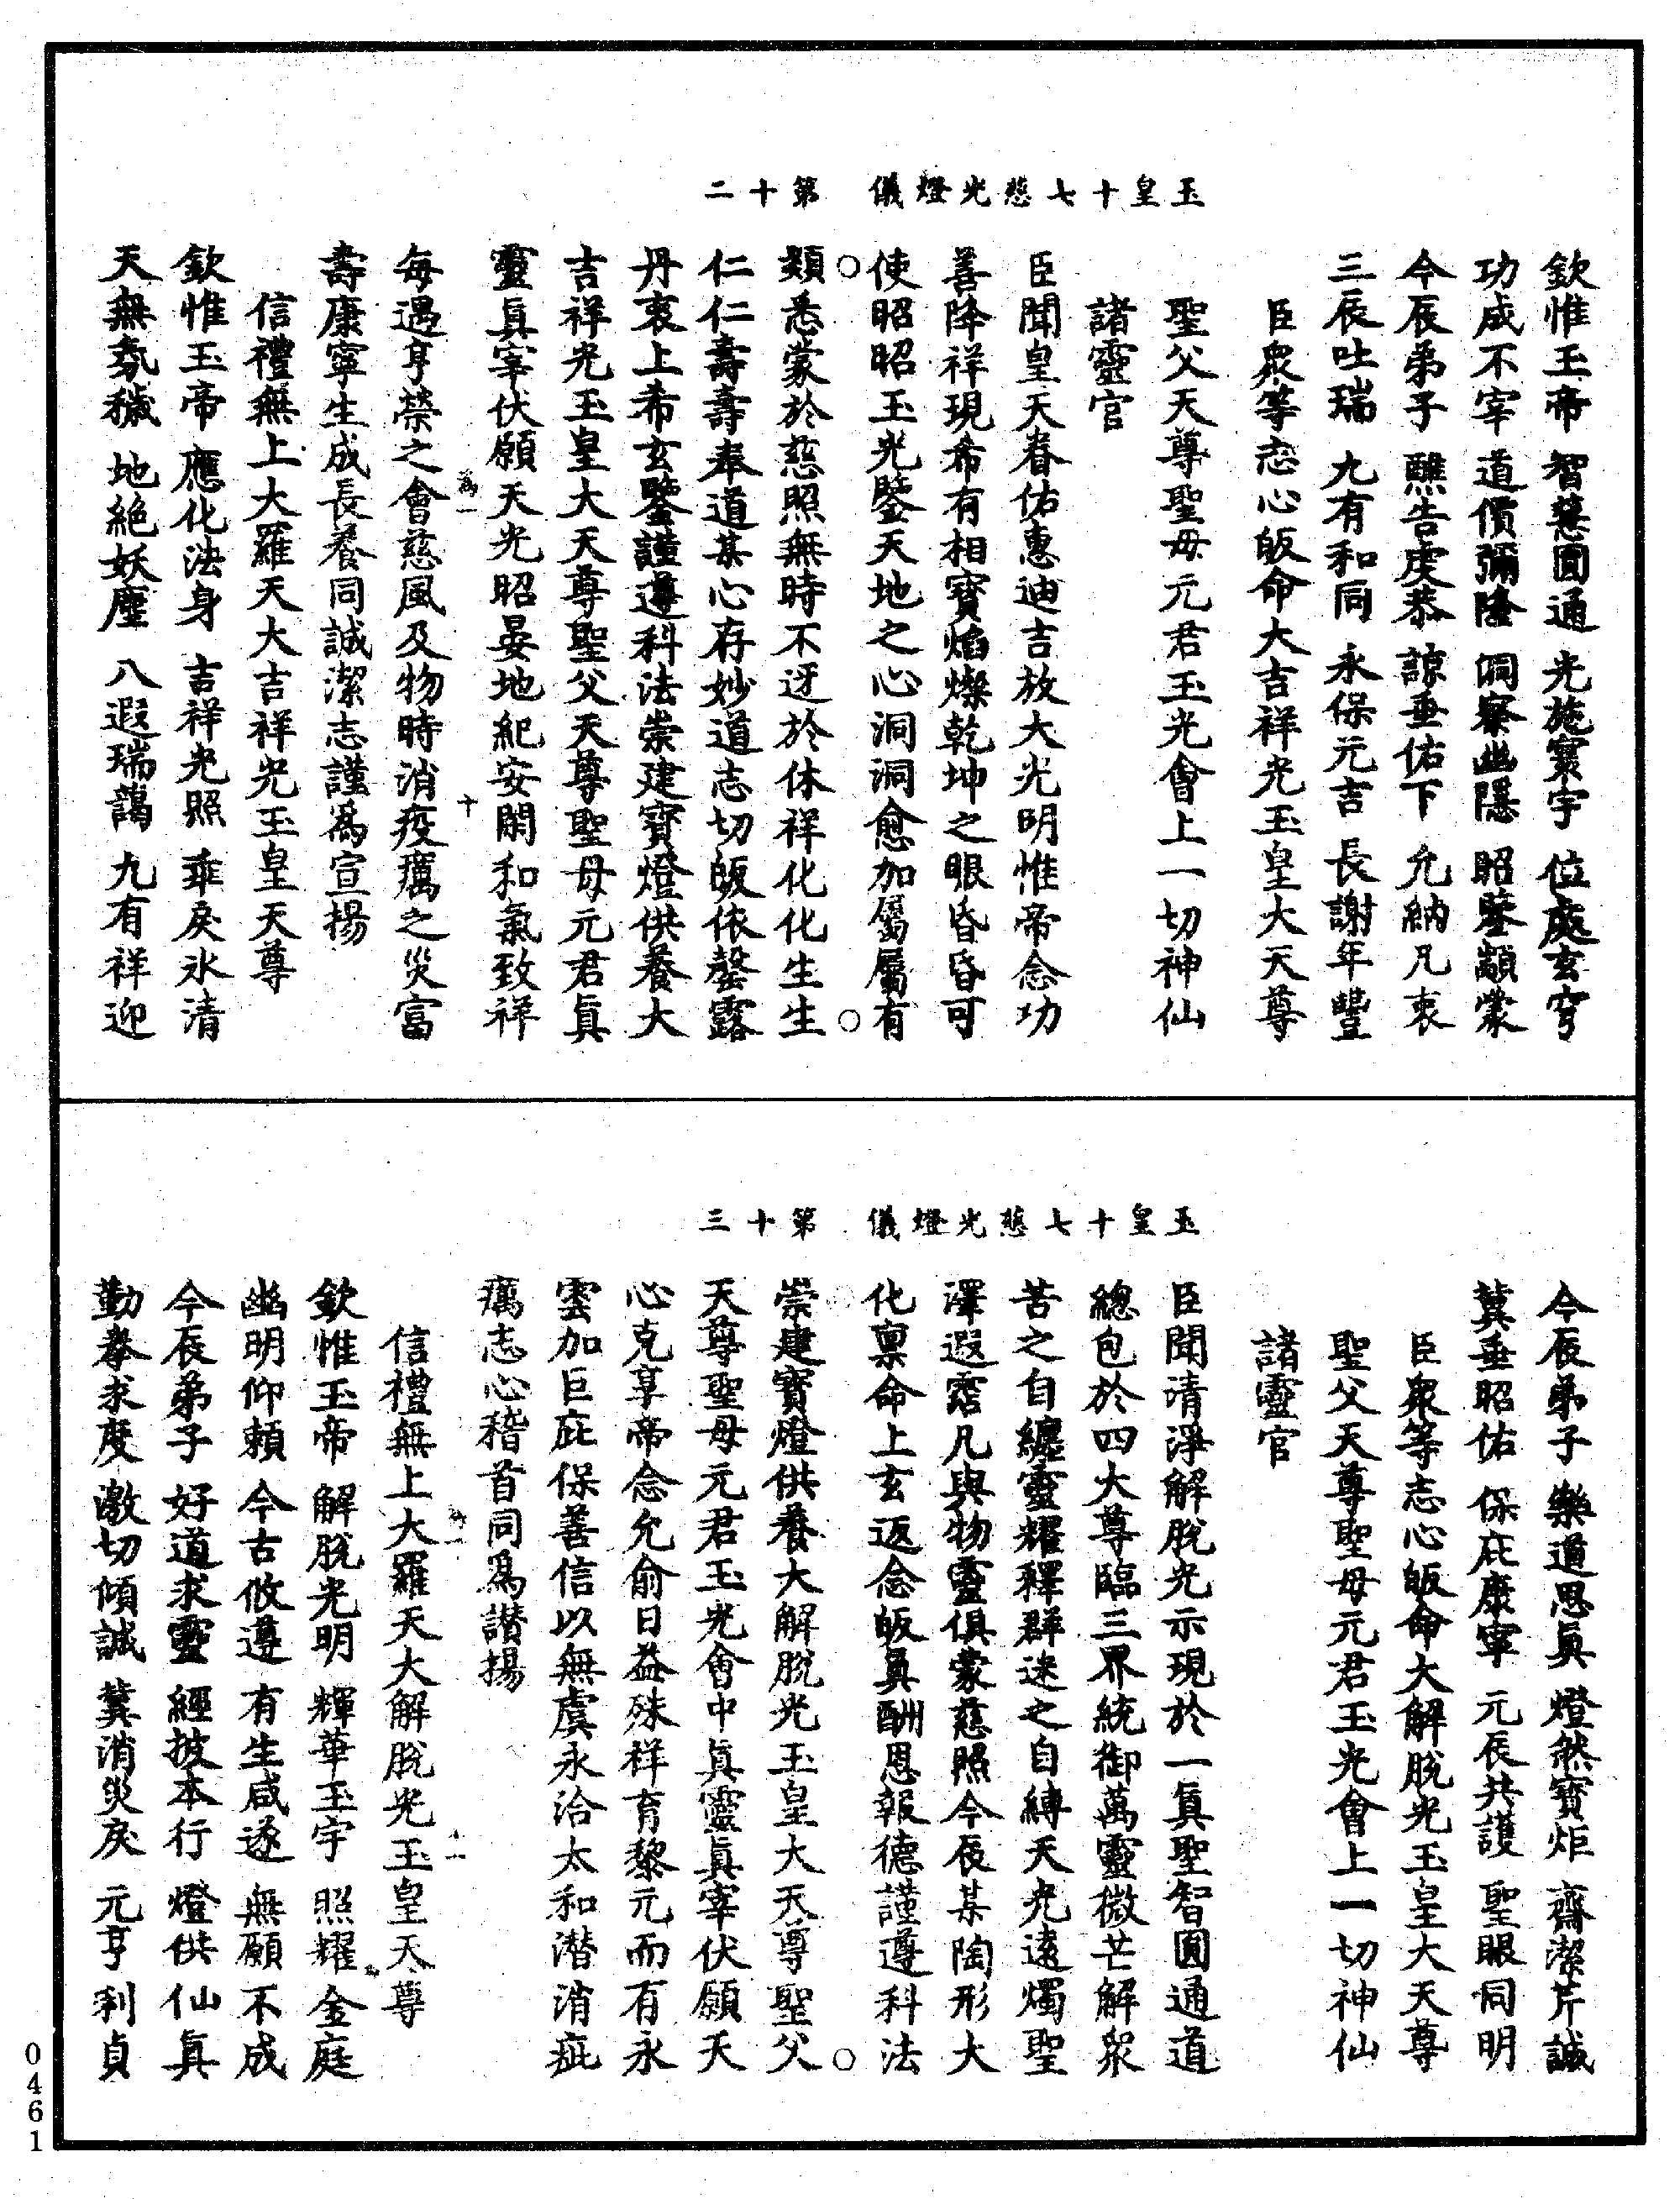 玉皇十七慈光燈儀　第十二
欽惟玉帝　智慧圓通　光施寰宇　位處玄穹
功成不宰　道價彌隆　洞察幽隱　昭鑒顓蒙
今辰弟子　醮告虔恭　諒垂佑下　允納凡衷
三辰吐瑞　九有和同　永保元吉　長謝年豐
臣衆等志心皈命大吉祥光玉皇大天尊
聖父天尊聖母元君玉光會上一切神仙
諸靈官
臣聞皇天眷佑惠迪吉放大光明惟帝念功
善降祥現希有相寶焰燦乾坤之眼昏昏可
使昭昭玉光鑒天地之心洞洞愈加屬屬有
類悉蒙於慈照無時不迓於休祥化化生生
仁仁壽壽奉道某心存妙道志切皈依罄露
丹衷上希玄鑒謹遵科法崇建寶燈供養大
吉祥光玉皇大天尊聖父天尊聖母元君眞
靈眞宰伏願天光昭晏地紀安閑和氣致祥
爲一　十
每遇亨榮之會慈風及物時消疫癘之災富
壽康寧生成長養同誠潔志謹爲宣揚
信禮無上大羅天大吉祥光玉皇天尊
欽惟玉帝　應化法身　吉祥光照　乖戾氷清
天無氛穢　地絶妖塵　八遐瑞藹　九有祥迎
玉皇十七慈光燈儀　第十三
今辰弟子　樂道思眞　燈然寶炬　齋潔芹誠
冀垂昭佑　保庇康寧　元辰共護　聖眼同明
臣衆等志心皈命大解脫光玉皇大天尊
聖父天尊聖母元君玉光會上一切神仙
諸靈官
臣聞清淨解脫光示現於一眞聖智圓通道
總包於四大尊臨三界統御萬靈微芒解衆
苦之自纏靈耀釋群迷之自縛天光遠燭聖
澤遐霑凡與物靈俱蒙慈照今辰某陶形大
化稟命上玄返念皈眞酬恩報德謹遵科法
崇建寶燈供養大解脫光玉皇大天尊聖父
天尊聖母元君玉光會中眞靈眞宰伏願天
心克享帝念允俞日益殊祥育黎元而有永
雲加巨庇保善信以無虞永洽太和潛消疵
癘志心稽首同爲讃揚
十一
信禮無上大羅天大解脫光玉皇天尊
欽惟玉帝　解脫光明　輝華玉宇　照耀金庭
幽明仰賴　今古攸遵　有生咸遂　無願不成
今辰弟子　好道求靈　經披本行　燈供仙眞
勤拳求度　激切傾誠　冀消災戾　元亨利貞
0461